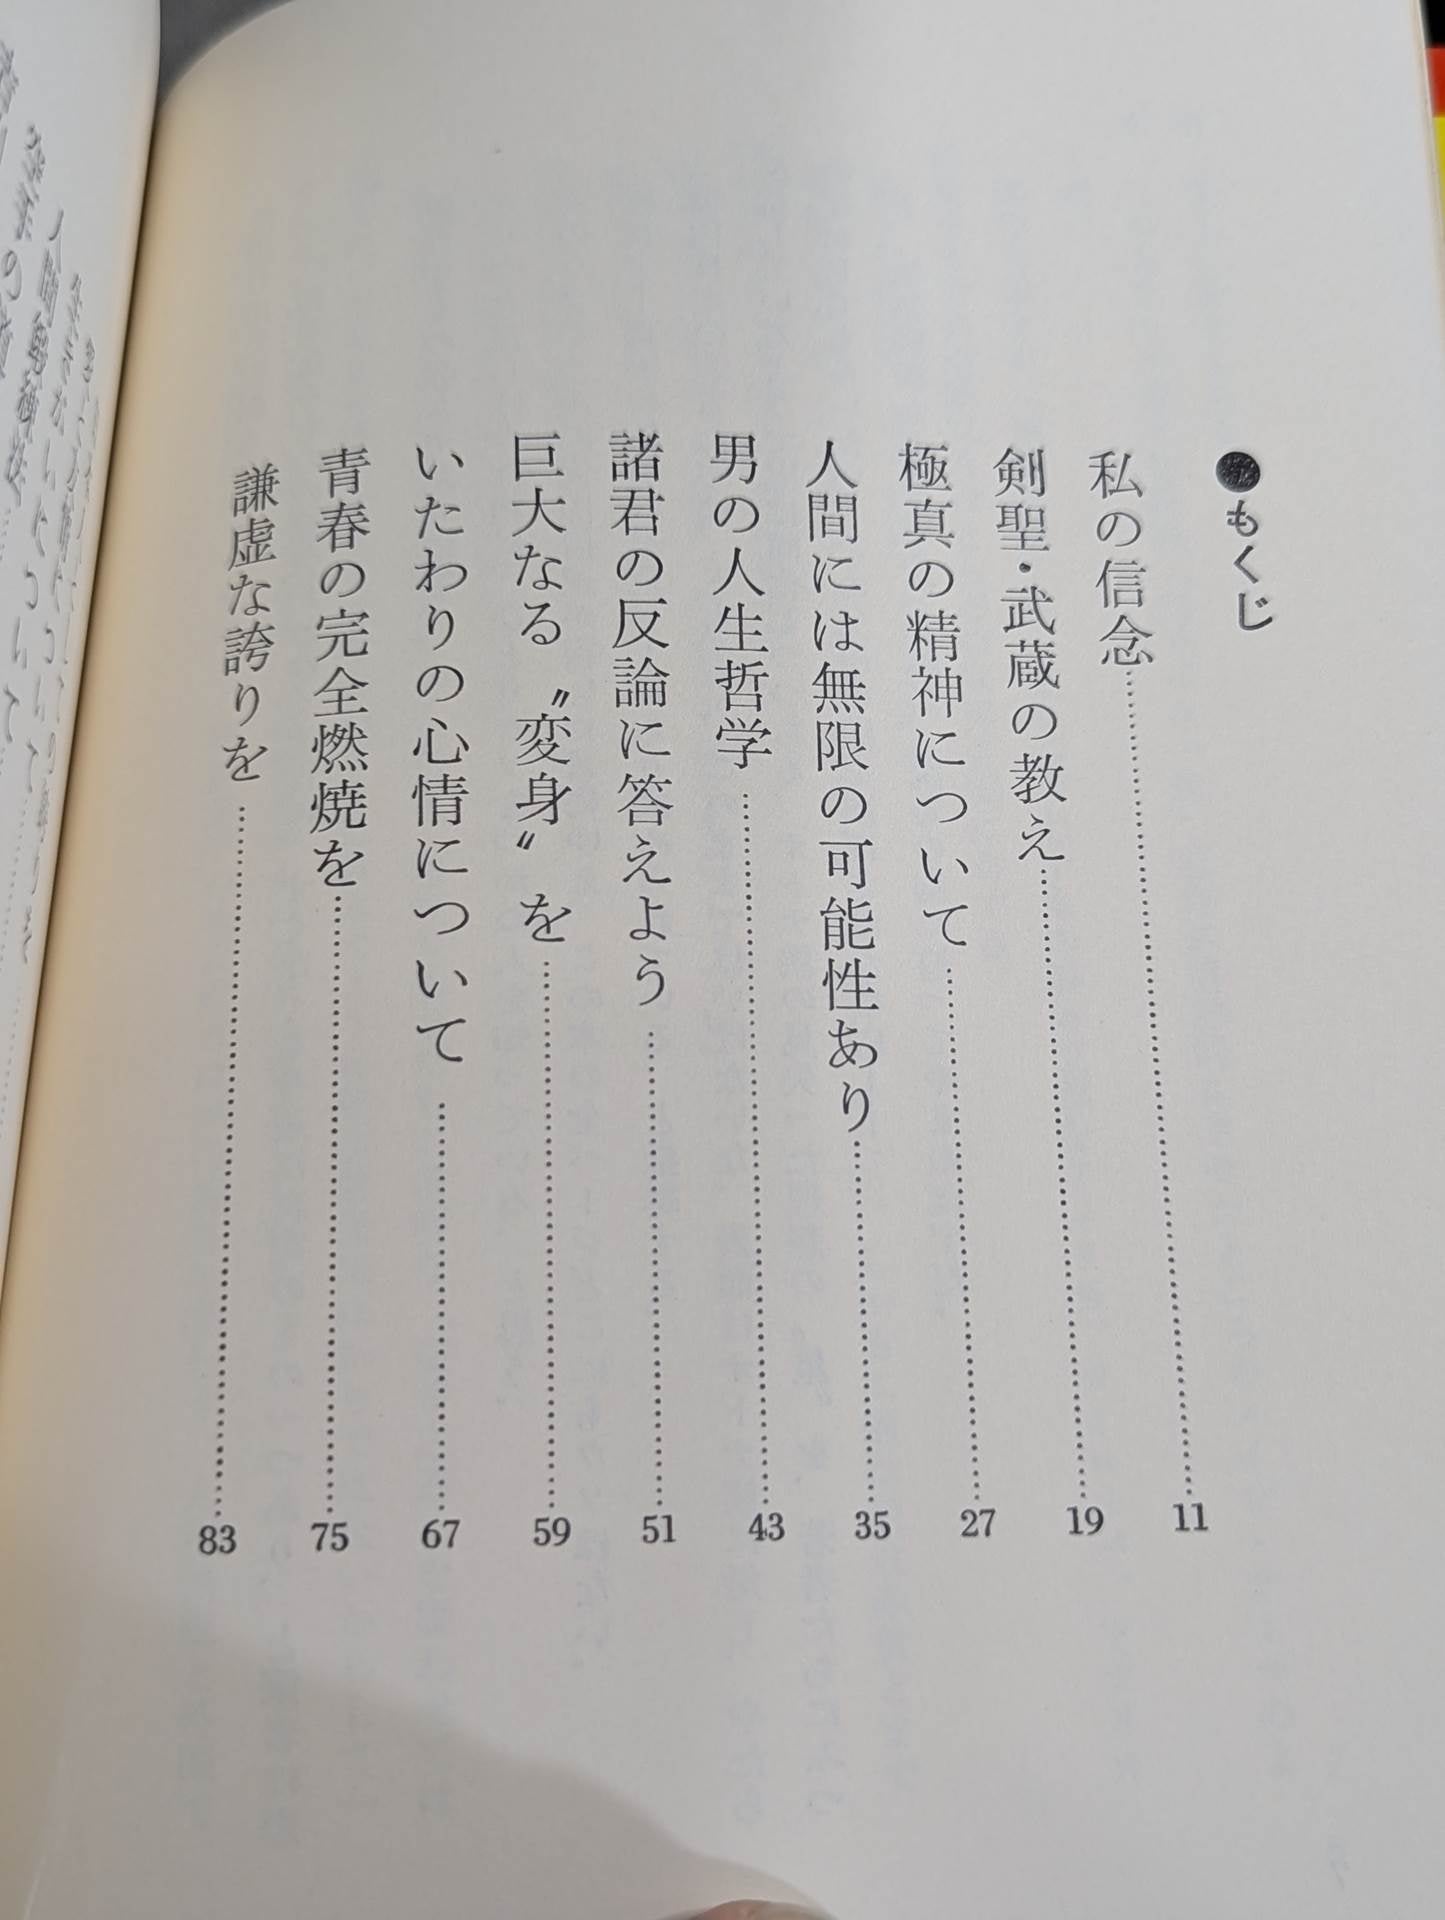 ●もくじ
私の信念……………11
剣聖・武蔵の教え……………19
極真の精神について……………27
人間には無限の可能性あり……………35
男の人生哲学……………43
諸君の反論に答えよう……………51
巨大なる〝変身〟を……………59
いたわりの心情について……………67
青春の完全燃焼を……………75
謙虚な誇りを……………83